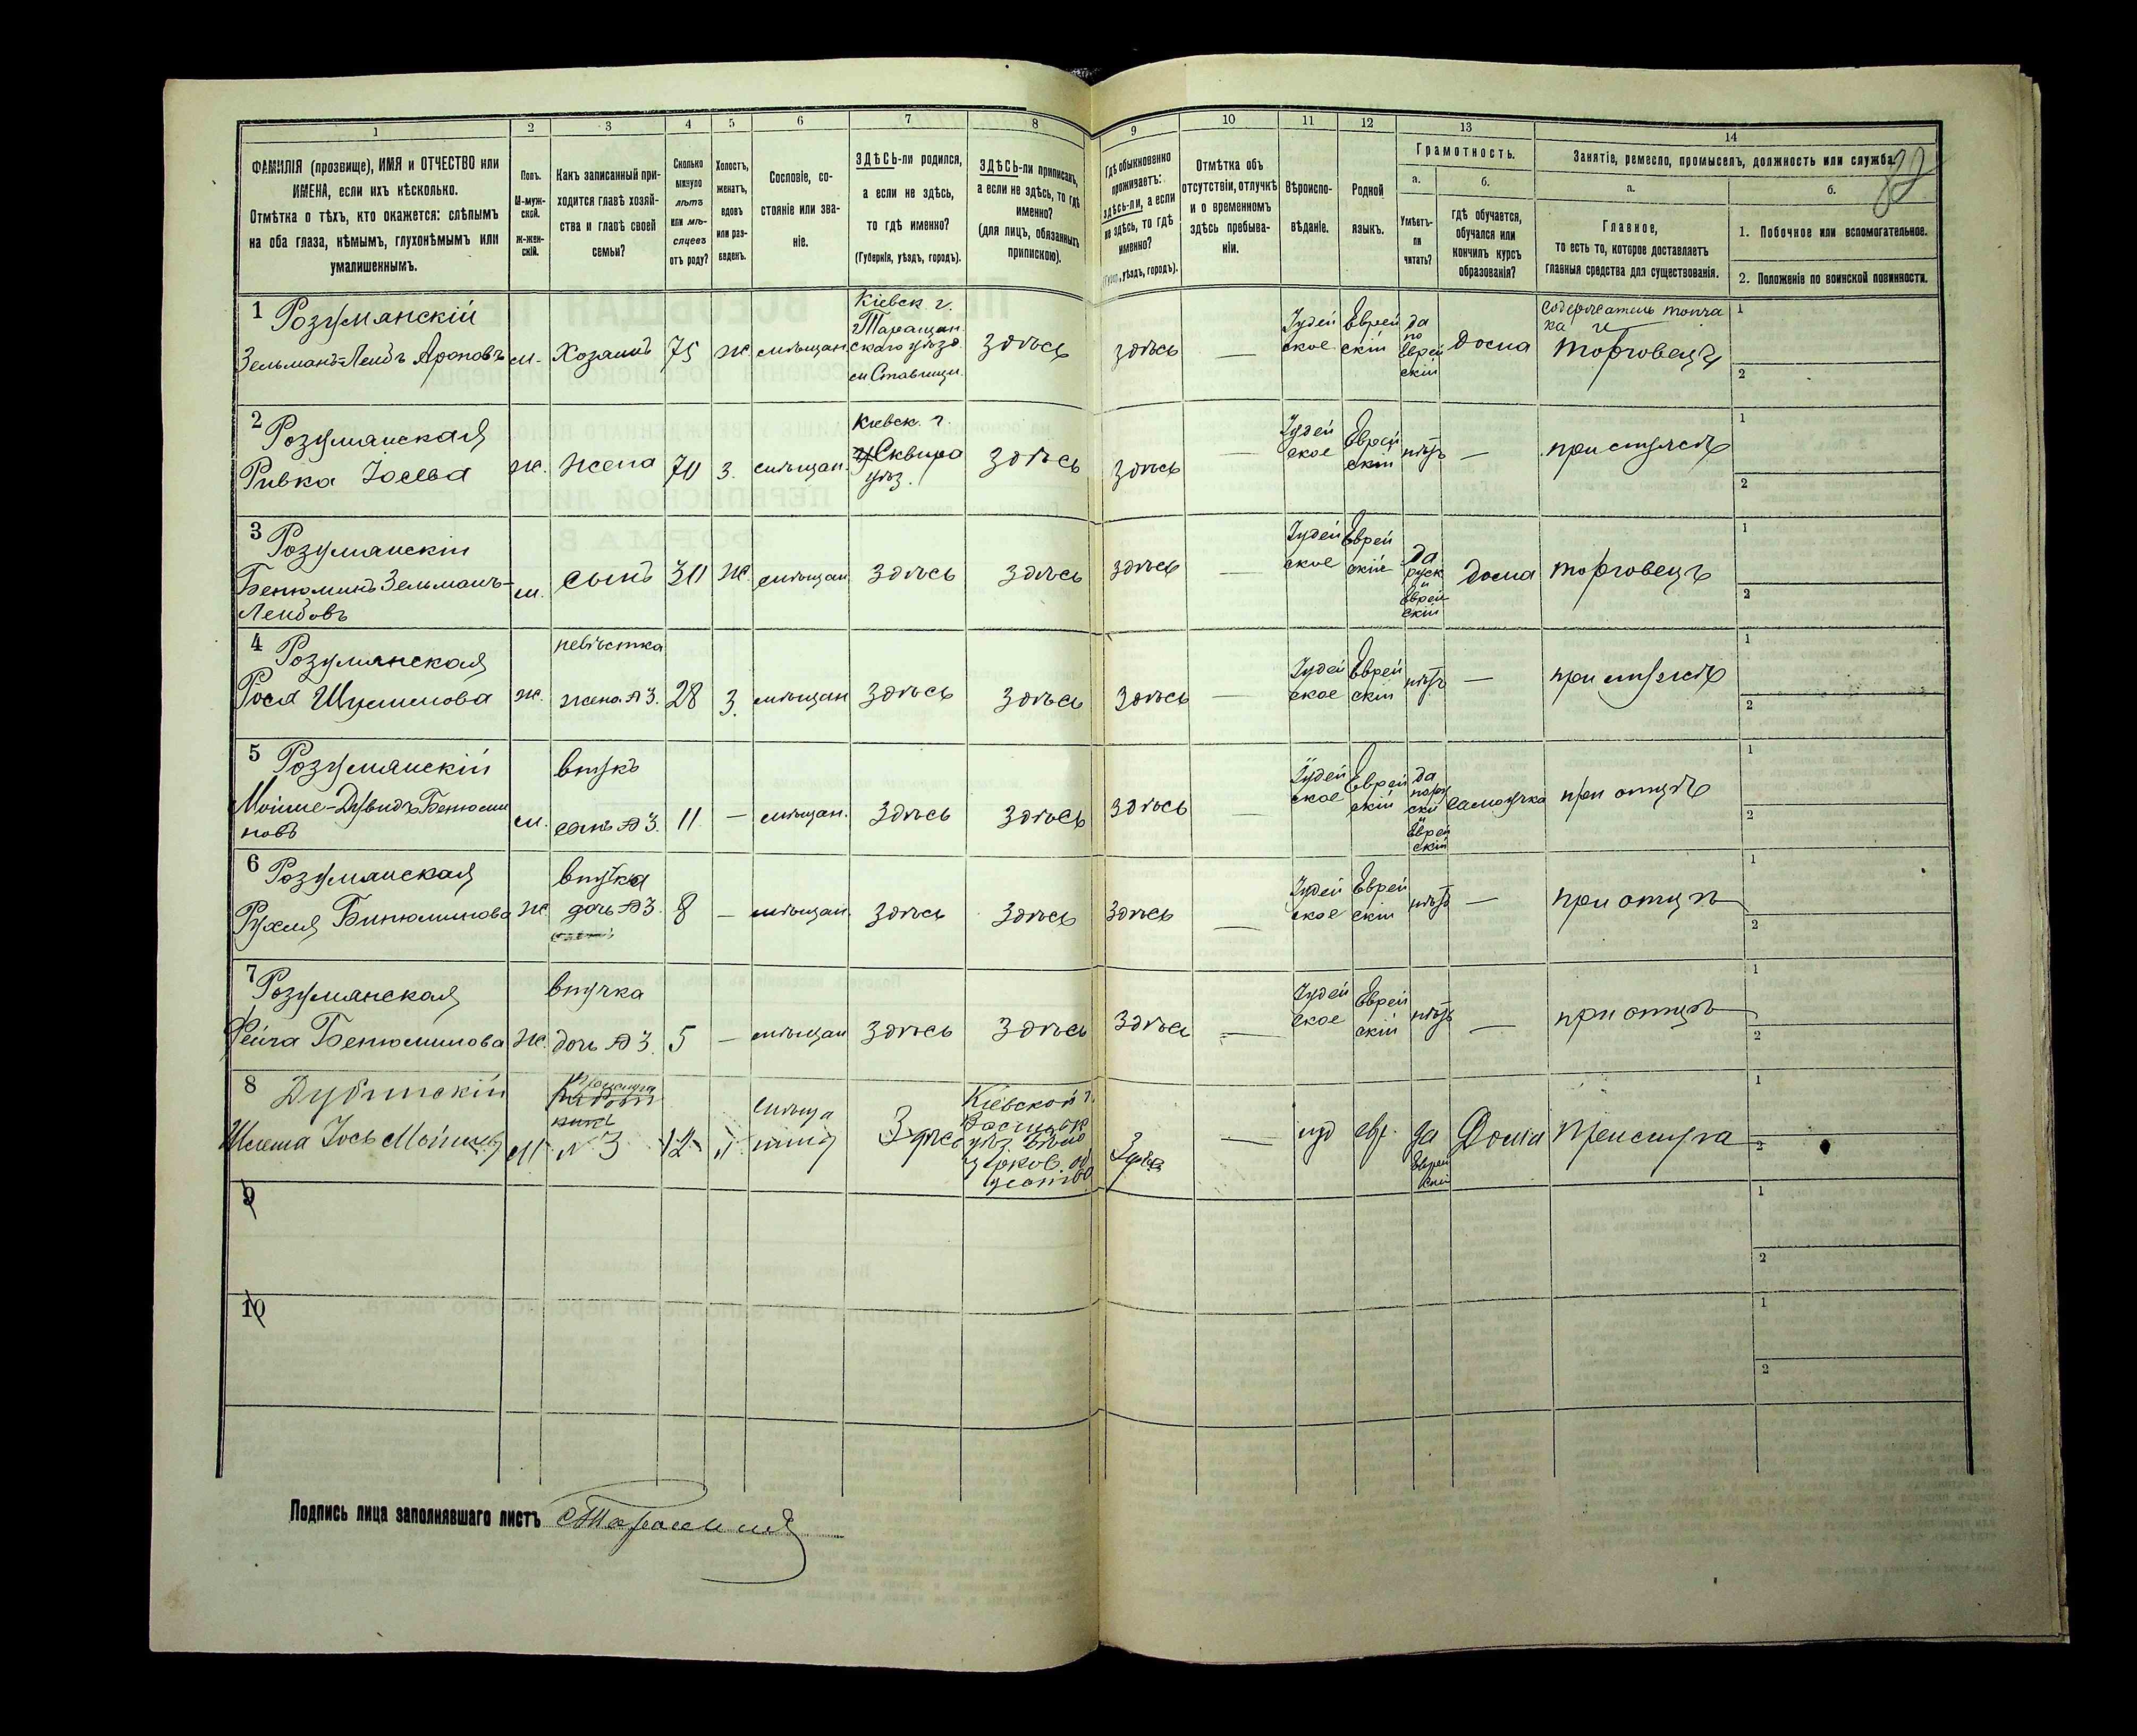 1 2 3 4 5 6 7 8 9 10 11 12 13 14
ФАМИЛІЯ (прозвище), ИМЯ и ОТЧЕСТВО или
ИМЕНА, если ихъ нѣсколько.
Отмѣтка о тѣхъ, кто окажется: слѣпымъ
на оба глаза, нѣмымъ, глухонѣмымъ или
умалишеннымъ.
Полъ.
М-муж-
ской.
Ж-жен-
скій.
Какъ записанный при-
ходится главѣ хозяй-
ства и главѣ своей
семьи?
Сколько
минуло
лѣтъ
или мѣ-
сяцевъ
отъ роду?
Холостъ,
женатъ,
вдовъ
или раз-
веденъ.
Сословіе, со-
стояніе или зва-
ніе.
ЗДѢСЬ-ли родился,
а если не здѣсь,
то гдѣ именно?
(Губернія, уѣздъ, городъ).
ЗДѢСЬ-ли приписанъ,
а если не здѣсь, то гдѣ
именно?
(для лицъ, обязанныхъ
припискою).
Гдѣ обыкновенно
проживаетъ:
здѣсь-ли, а если
не здѣсь, то гдѣ
именно?
(Губ., уѣздъ, городъ).
Отмѣтка объ
отсутствіи, отлучкѣ
и о временномъ
здѣсь пребыва-
ніи.
Вѣроиспо-
вѣданіе.
Родной
языкъ.
Грамотность.
а.
Умѣетъ-
ли
читать?
б.
гдѣ обучается,
обучался или
кончилъ курсъ
образованія?
Занятіе, ремесло, промыселъ, должность или служба.
а.
Главное,
то есть то, которое доставляетъ
главныя средства для существованія.
б.
1. Побочное или вспомогательное.
2. Положеніе по воинской повинности.
82
1 Розумянскій
Зельманъ-Лейбъ Ароновъ
м. Хозяинъ 75 ж мѣщан.
Кіевск г.
Таращан
скаго уѣзд.
м. Ставищи.
здѣсь здѣсь —
Іудей
ское
Еврей
скій
да
по
Еврей
скій
дома
содержатель
и
торговецъ
1
2
2 Розумянская
Ривка Іосева
ж. жена 70 з. мѣщан.
Кіевск. г.
Сквира
уѣз.
здѣсь здѣсь —
Іудей
ское
Еврей
скій
нѣтъ —
при мужѣ
1
2
3 Розумянскій
Бенюминъ Зельманъ-
Лейбовъ
м. сынъ 30 ж. мѣщан. здѣсь здѣсь здѣсь —
Іудей
ское
Еврей
скій
да
руск
и
Еврей
скій
дома торговецъ
1
2
4 Розумянская
Рося Шулимова
ж.
невѣстка
жена №3. 28 з. мѣщан здѣсь здѣсь здѣсь —
Іудей
ское
Еврей
скій
нѣтъ —
при мужѣ
1
2
5 Розумянскій
Мойше-Дувидъ Бенюми
новъ
м.
внукъ
сынъ №3. 11 — мѣщан. здѣсь здѣсь здѣсь —
Іудей
ское
Еврей
скій
да
по ру
ски
и
Еврей
скій
самоучка при отцѣ
1
2
6 Розумянская
Рухля Бинюминова
ж
внучка
дочь №3. 8 — мѣщан. здѣсь здѣсь здѣсь —
Іудей
ское
Еврей
скій
нѣтъ —
при отцѣ
1
2
7 Розумянская
Фейга Бенюминова
ж.
внучка
дочь №3. 5 — мѣщан здѣсь здѣсь здѣсь —
Іудей
ское
Еврей
скій
нѣтъ —
при отцѣ
1
2
8 Дубинскій
Шлема Іось Мойшев
м
прислуга
№ 3 12
мѣща
нинъ
Здѣсь
Кіевской г.
уѣз. Бѣло
церков. об
щества
Здѣсь —
іуд евр.
да
Еврей
скій
Дома Прислуга
1
2
9
1
2
10
1
2
Подпись лица заполнявшаго листъ